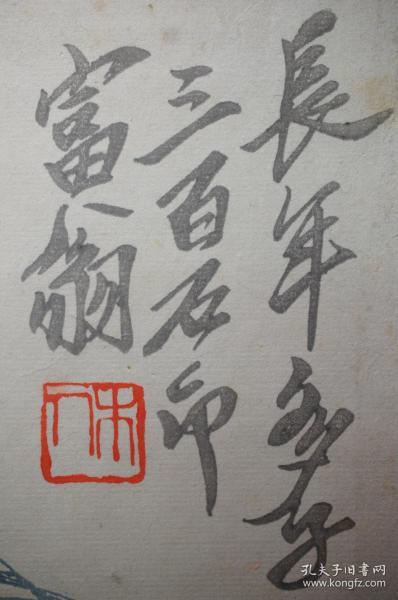 長年多子
三百石印
富翁
木人
孔夫子旧书网
www.kongfz.com